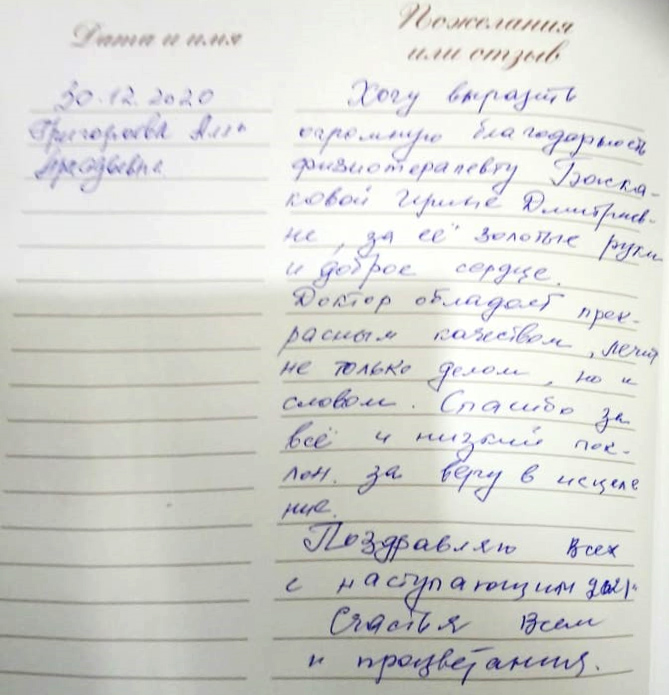 Дата и имя
Пожелания
или отзыв
30.12.2020
Григорьева Алла
Хочу выразить
огромную благодарность
физиотерапевту Боска-
ковой Ирине Дмитриев-
не, за её золотые руки
и доброе сердце.
Доктор обладает прек-
расным качеством, лечит
не только делом, но и
словом. Спасибо за
всё и низкий пок-
лон. за веру в исцеле
ние.
Поздравляю всех
с наступающим 2021г.
Счастья Всем
и процветания.